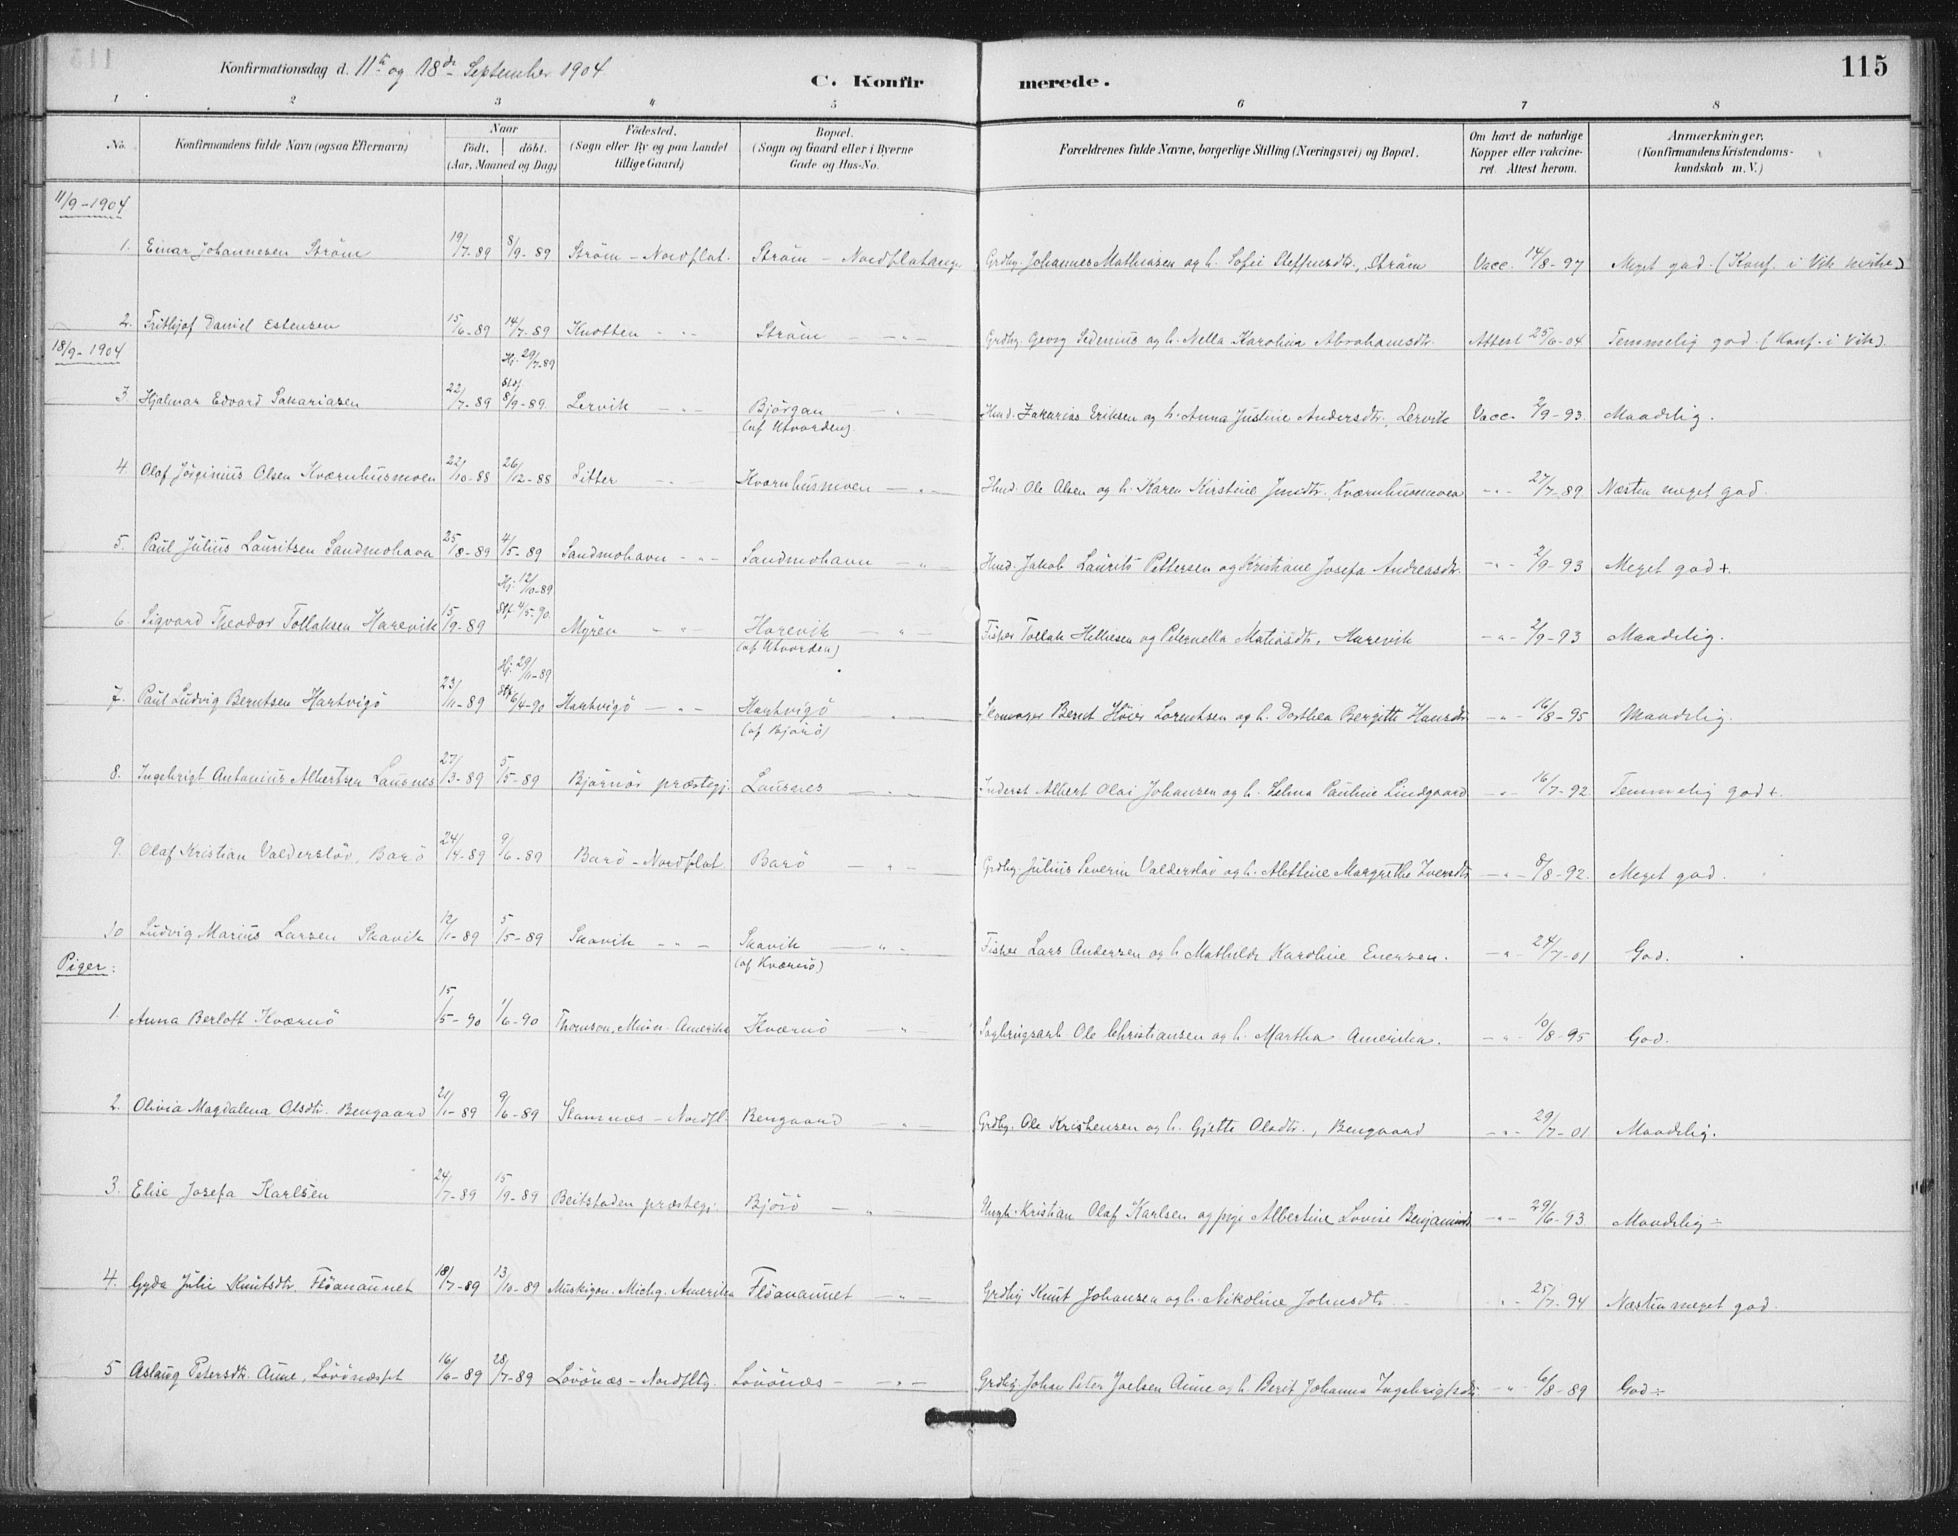 Konfirmationsdag d. 11te og 18de September 1904.
C. Konfirmerede.
115
1 2 3 4 5 6 7 8
No.
Konfirmandens fulde Navn (ogsaa Efternavn)
Naar født. døbt. (Aar, Maaned og Dag)
Fødested. (Sogn eller By og paa Landet tillige Gaard)
Bopæl. (Sogn og Gaard eller i Byerne Gade og Hus-No.
Forældrenes fulde Navne, borgerlige Stilling (Næringsvei) og Bopæl.
Om havt de naturlige Kopper eller vakcineret. Attest herom.
Anmærkninger. (Konfirmandens Kristendomskundskab m. V.)
11/9-1904
1. Einar Johannesen Strøm 19/7-89 8/9-89 Strøm - Nordflat. Strøm - Nordflatang. Grdbg. Johannes Mathiasen og h. Sofie Steffensdtr., Strøm Vacc. 14/8-97 Meget god. (Konf. i Vik kirke)
2. Frithjof Daniel Estensen 15/6-89 14/7-89 Knotten - " - Strøm - " - Grdbg. Georg Sedenius og h. Nella Karolina Abrahamsdtr. Attest 25/6-04 Temmelig god. (Konf. i Vik).
18/9-1904
3. Hjalmar Edvard Sakariasen 22/7-89 Hj. 29/7-89 Stf. 8/9-89. Lervik - " - Bjørgan - " - (af Utvorden) Husd. Zakarias Eriksen og h. Anna Justine Andersdtr., Lervik Vacc. 2/9-93. Maadelig.
4. Olaf Jørginius Olsen Kværnhusmoen 22/10-88 26/12-88 Sitter - " - Kvernhusmoen - " - Husd. Ole Olsen og h. Karen Kirstine Jensdtr., Kværnhusmoen - " - 27/7-89 Næsten meget god.
5. Paul Julius Lauritsen Sandmohavn 25/8-89 4/5-89 Sandmohavn - " - Sandmohavn - " - Husd. Jakob Laurits Pettersen og Kristiane Josefa Andreasdtr. - " - 2/9-93 Meget god +.
6. Sigvard Theodor Tollaksen Harevik 15/9-89 Hj. 12/10-89 Stf. 4/5-90. Myren - " - Harevik - " - (af Utvorden) Fisker Tollak Hellesen og Peternella Matiasdtr., Harevik - " - 2/9-93 Maadelig.
7. Paul Ludvig Berntsen Hartvigø 23/11-89 Hj. 29/11-89 Stf. 6/4-90 Hartvigø - " - Hartvigø - " - (af Bjørø) Bernt Lorentsen og h. Dorthea Bergitte Hansdtr. - " - 16/8-95 Maadelig.
8. Ingebrigt Antonius Albertsen Lausnes 27/3-89 5/5-89 Bjørnør præstegj. Lausnes - " - Inderst Albert Olai Johansen og h. Selma Pauline Lindgaard - " - 16/7-92 Temmelig god +.
9. Olaf Kristian Valdersløv, Barø 24/4-89 9/6-89 Barø - Nordflat. Barø - " - Grdbg. Julius Severin Valderslöv og h. Alettine Margrethe Iversdtr. - " - 8/8-92. Meget god.
10 Ludvig Marius Larsen Skavik 12/1-89 5/5-89 Skavik - " - Skavik - " - (af Kværnø) Fisker Lars Andersen og h. Mathilde Karoline Enersen. - " - 24/7-01 God.
Piger:
1. Anna Berlott Kværnø 15/5-90 1/6-90 Thomson, Minn. Amerika Kværnø - " - Sagbrugsarb. Ole Christiansen og h. Martha Amerika. - " - 10/8-95 God.
2. Olivia Magdalena Olsdtr. Bengaard 21/1-89 9/6-89 Stamnes - Nordfl. Bengaard - " - Grdbg. Ole Kristensen og h. Gjette Olsdtr., Bengaard - " - 29/7-01 Maadelig.
3. Elise Josefa Karlsen 24/7-89 15/9-89 Beitstaden præstegj. Bjørø - " - Ungk. Kristian Olaf Karlsen og pige Albertine Lovise Benjaminsd. - " - 29/6-93 Maadelig ÷
4. Gyda Julie Knutsdtr. Fløanaunet 18/7-89 13/10-89 Muskigon. Michg. Amerika Fløanaunet - " - Grdbg. Knut Johansen og h. Nikoline Johnsdtr. - " - 25/7-94 Næsten meget god.
5 Aslaug Petersdtr. Aune, Løvönæsset 16/6-89 28/7-89 Løvönæs - Nordfltg. Løvönæs - " - Grdbg. Johan Peter Joelsen Aune og h. Berit Johanna Ingebrigtsdtr. - " - 6/8-89 God ÷